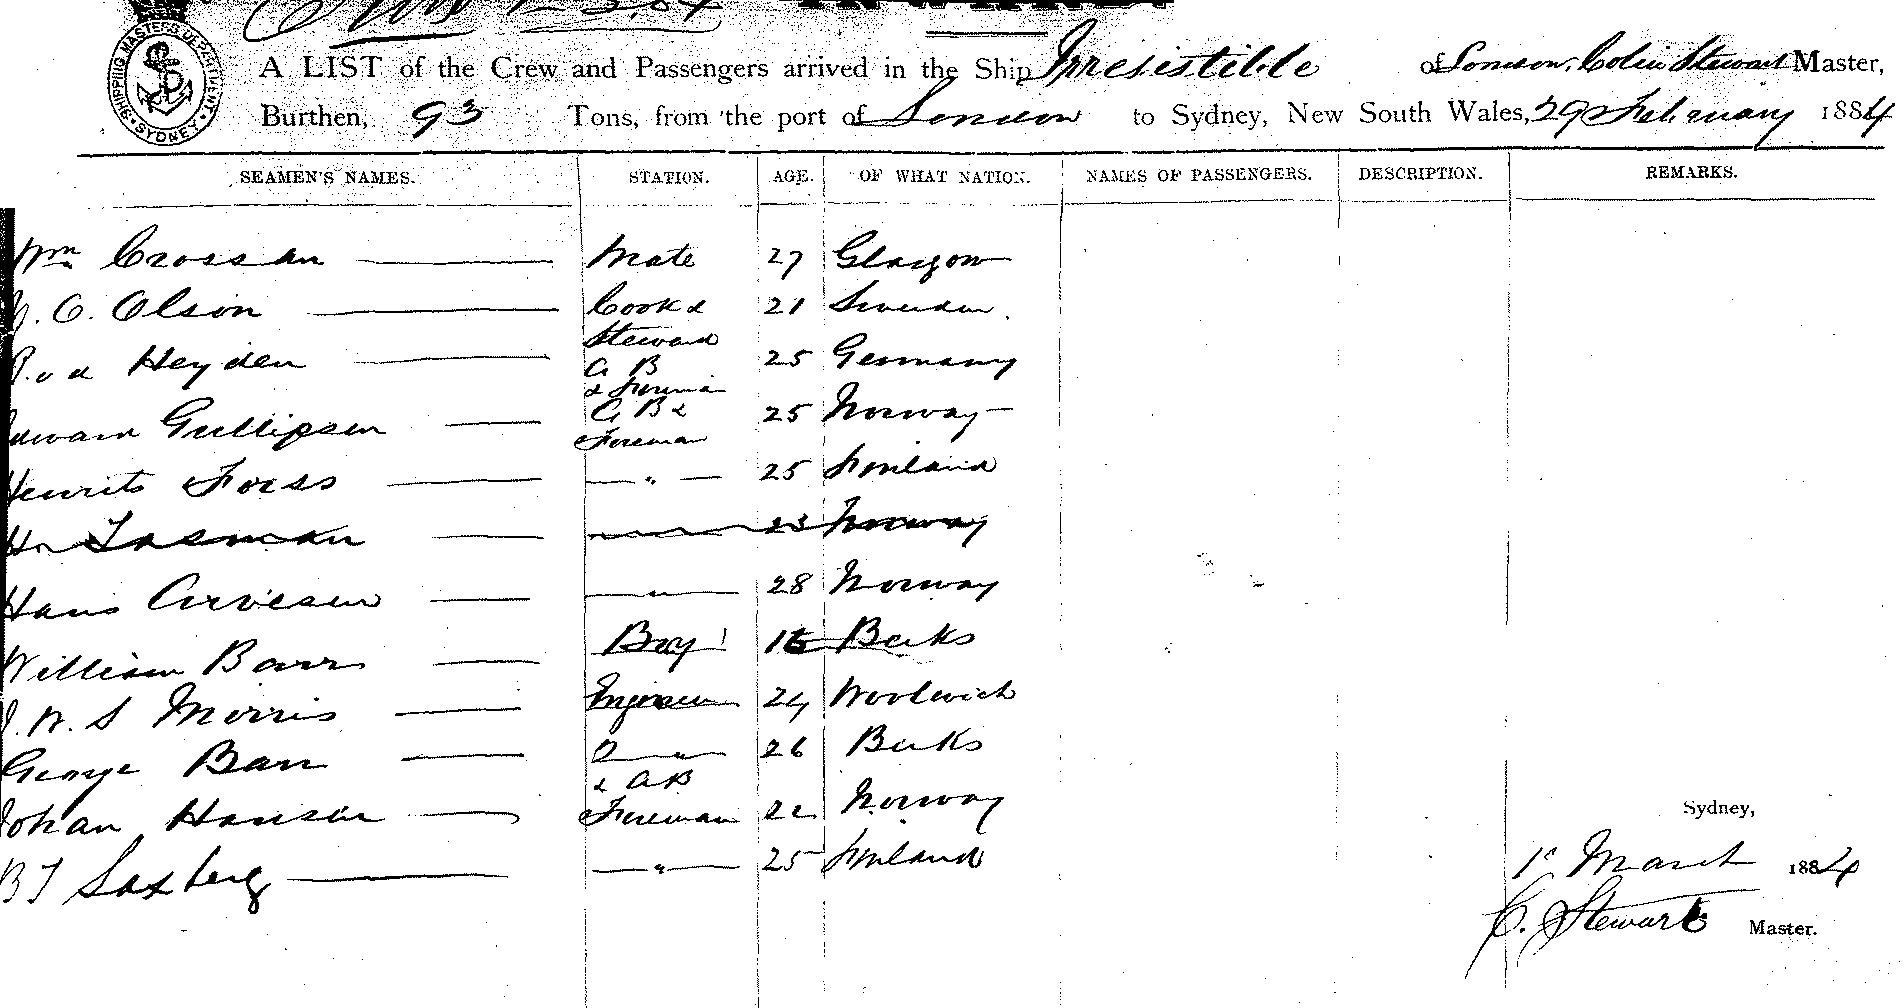 SHIPPING MASTERS DEPARTMENT SYDNEY
A LIST of the Crew and Passengers arrived in the Ship Irresistible of London, Colin Stewart Master,
Burthen, 93 Tons, from the port of London to Sydney, New South Wales, 29 February 1884
SEAMEN'S NAMES. STATION. AGE. OF WHAT NATION. NAMES OF PASSENGERS. DESCRIPTION. REMARKS.
Wm Crossan Mate 27 Glasgow
O. Olson Cook & 21 Sweden
Steward
Heyden A B 25 Germany
& Foreman
Edward Gullipsen A B & 25 Norway
Foreman
Foess " 25 Finland
Tasman 23 Norway
Hans Arvesen " 28 Norway
William Barr Boy 16 Berks
W. S Morris Engineer 24 Woolwich
George Barr 2 " 26 Berks
& AB
Johan Hansen Foreman 22 Norway
B T Saxberg " 25 Finland
Sydney,
1 March 1884
C. Stewart Master.